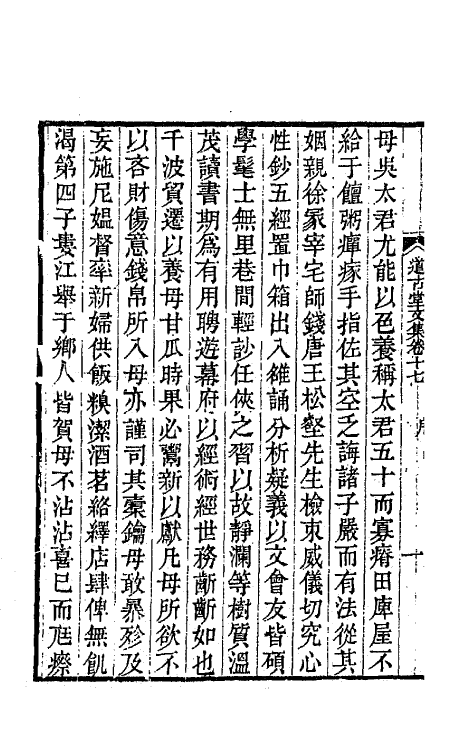 道古堂文集卷十七 序 一
母吳太君尤能以色養稱太君五十而寡瘠田庳屋不
給于饘粥癉瘃手指佐其空乏誨諸子嚴而有法從其
姻親徐冢宰宅師錢唐王松壑先生檢束威儀切究心
性鈔五經置巾箱出入雒誦分析疑義以文會友皆碩
學髦士無里巷間輕訬任俠之習以故靜瀾等樹質溫
茂讀書期為有用聘遊幕府以經術經世務齗齗如也
千波貿遷以養母甘瓜時果必鬻新以獻凡母所欲不
以吝財傷意錢帛所入母亦謹司其橐鑰母敢暴殄及
妄施尼媼督率新婦供飯糗潔酒茗絡繹店肆俾無飢
渴第四子婁江舉于鄉人皆賀母不沾沾喜已而尪瘵